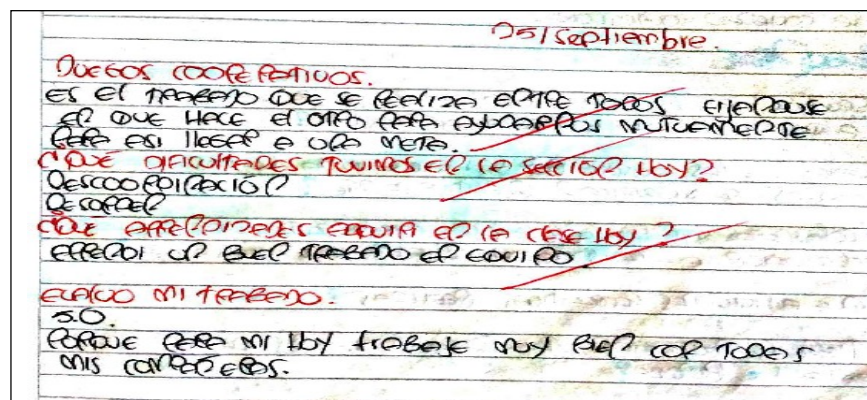 25/septiembre.
JUEGOS COOPERATIVOS.
ES El TRABAJO QUE SE REALIZA ENTRE TODOS FIJANDOSE
EN QUE HACE El OTRO PARA AYUDARNOS MUTUAMENTE
PARA ASI llEGAR A UNA META.
¿QUÉ DIFICULTADES TUVIMOS EN LA SECCION HOY?
DESCOORDINACIÓN
DESORDEN
¿QUÉ APRENDIZAJES EN LA CLASE HOY?
APRENDI UN BUEN TRABAJO EN EQUIPO
EVALUO MI TRABAJO.
5.0.
PORQUE PARA MI HOY TRABAJE MUY BIEN CON TODOS
MIS COMPAÑEROS.